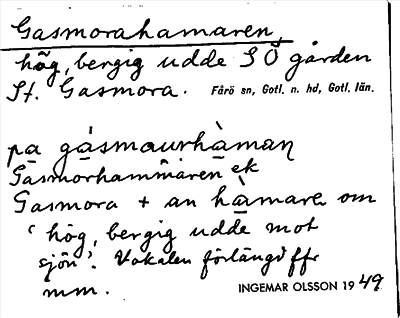 Gasmorahamaren,
hög, bergig udde S Ö gården
St. Gasmora. Fårö sn, Gotl. n. hd, Gotl. län.
pa gásmaurhàman
Gasmorhammaren ek
Gasmora + an hàmare om
' hög, bergig udde mot
sjön'. Vokalen förlängd ffr
mm. INGEMAR OLSSON 1949